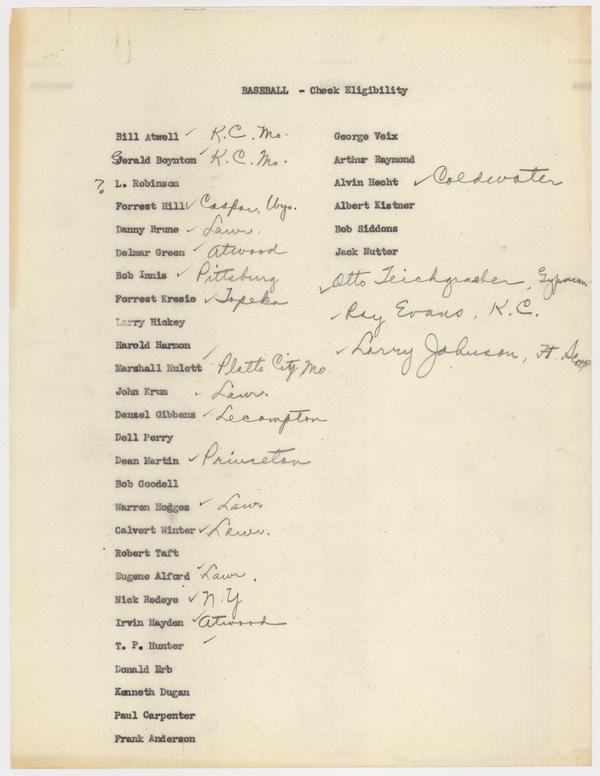 BASEBALL - Check Eligibility
Bill Atwell ✓ K.C. Mo.
Gerald Boynton ✓ K.C. Mo.
? L. Robinson
Forrest Hill ✓ Casper, Wyo.
Danny Brune ✓ Lawr.
Delmar Green ✓ Atwood
Bob Innis ✓ Pittsburg
Forrest Kresie ✓ Topeka
Larry Hickey
Harold Harmon
Marshall Hulett ✓ Platte City Mo.
John Krum ✓ Lawr.
Denzel Gibbens ✓ Lecompton
Dell Perry
Dean Martin ✓ Princeton
Bob Goodell
Warren Hodges ✓ Lawr
Calvert Winter ✓ Lawr.
Robert Taft
Eugene Alford ✓ Lawr.
Nick Redeye ✓ N.Y
Irvin Hayden ✓ Atwood
T. P. Hunter ✓
Donald Erb
Kenneth Dugan
Paul Carpenter
Frank Anderson
George Veix
Arthur Raymond
Alvin Hecht ✓ Coldwater
Albert Kistner
Bob Siddons
Jack Nutter
✓ Otto Teichgraeber, Gypsum
✓ Ray Evans, K.C.
✓ Larry Johnson, Ft Scott